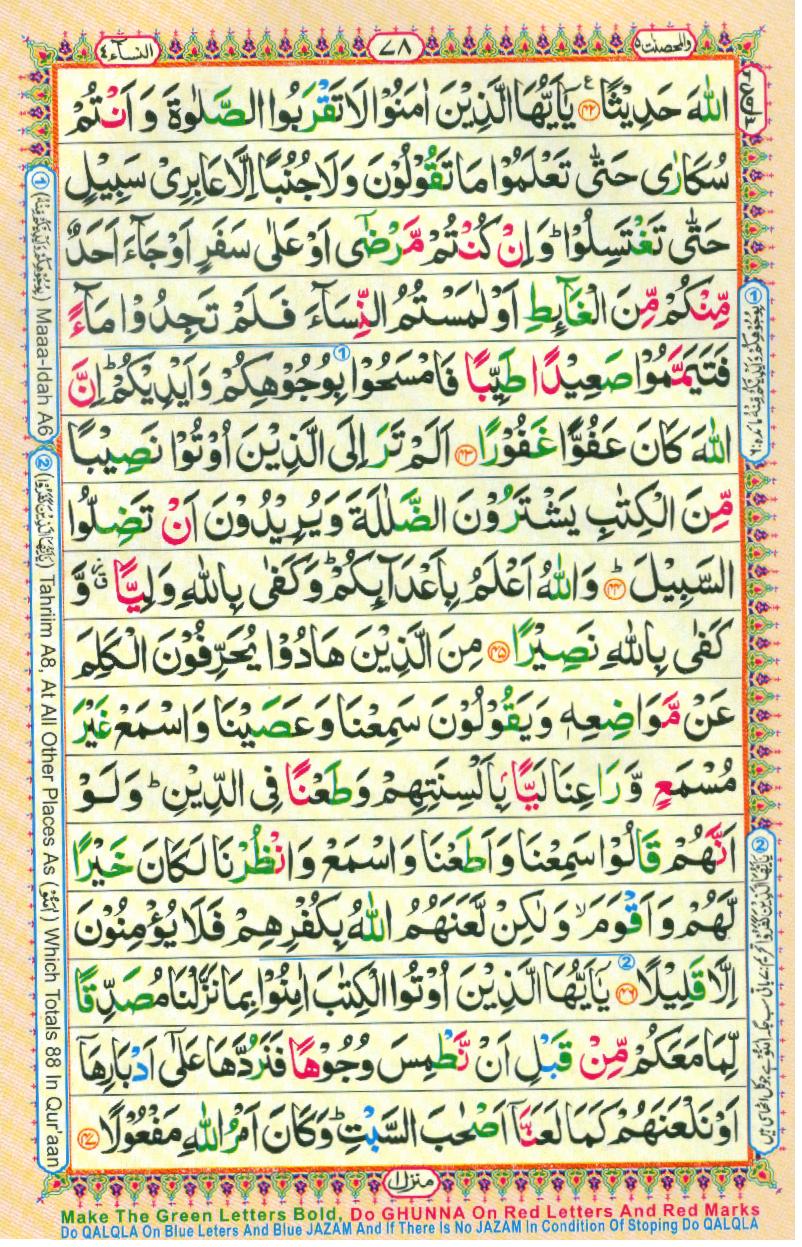 النسآء ٤
٧٨
والمحصنٰت ٥
اللّٰهَ حَدِيْثًا ﴿٤٢﴾ يٰٓاَيُّهَا الَّذِيْنَ اٰمَنُوْا لَا تَقْرَبُوا الصَّلٰوةَ وَ اَنْتُمْ
سُكَارٰى حَتّٰى تَعْلَمُوْا مَا تَقُوْلُوْنَ وَلَا جُنُبًا اِلَّا عَابِرِىْ سَبِيْلٍ
حَتّٰى تَغْتَسِلُوْا ؕ وَاِنْ كُنْتُمْ مَّرْضٰٓى اَوْ عَلٰى سَفَرٍ اَوْ جَآءَ اَحَدٌ
مِّنْكُمْ مِّنَ الْغَآئِطِ اَوْ لٰمَسْتُمُ النِّسَآءَ فَلَمْ تَجِدُوْا مَآءً
فَتَيَمَّمُوْا صَعِيْدًا طَيِّبًا فَامْسَحُوْا بِوُجُوْهِكُمْ وَاَيْدِيْكُمْ ؕ اِنَّ
اللّٰهَ كَانَ عَفُوًّا غَفُوْرًا ﴿٤٣﴾ اَلَمْ تَرَ اِلَى الَّذِيْنَ اُوْتُوْا نَصِيْبًا
مِّنَ الْكِتٰبِ يَشْتَرُوْنَ الضَّلٰلَةَ وَيُرِيْدُوْنَ اَنْ تَضِلُّوا
السَّبِيْلَ ﴿٤٤﴾ؕ وَاللّٰهُ اَعْلَمُ بِاَعْدَآئِكُمْ ؕ وَكَفٰى بِاللّٰهِ وَلِيًّا ٭ۗ وَّ
كَفٰى بِاللّٰهِ نَصِيْرًا ﴿٤٥﴾ مِنَ الَّذِيْنَ هَادُوْا يُحَرِّفُوْنَ الْكَلِمَ
عَنْ مَّوَاضِعِهٖ وَيَقُوْلُوْنَ سَمِعْنَا وَعَصَيْنَا وَاسْمَعْ غَيْرَ
مُسْمَعٍ وَّرَاعِنَا لَيًّۢا بِاَلْسِنَتِهِمْ وَطَعْنًا فِى الدِّيْنِ ؕ وَلَوْ
اَنَّهُمْ قَالُوْا سَمِعْنَا وَاَطَعْنَا وَاسْمَعْ وَانْظُرْنَا لَكَانَ خَيْرًا
لَّهُمْ وَاَقْوَمَ ۙ وَلٰكِنْ لَّعَنَهُمُ اللّٰهُ بِكُفْرِهِمْ فَلَا يُؤْمِنُوْنَ
اِلَّا قَلِيْلًا ﴿٤٦﴾ يٰٓاَيُّهَا الَّذِيْنَ اُوْتُوا الْكِتٰبَ اٰمِنُوْا بِمَا نَزَّلْنَا مُصَدِّقًا
لِّمَا مَعَكُمْ مِّنْ قَبْلِ اَنْ نَّطْمِسَ وُجُوْهًا فَنَرُدَّهَا عَلٰٓى اَدْبَارِهَآ
اَوْ نَلْعَنَهُمْ كَمَا لَعَنَّآ اَصْحٰبَ السَّبْتِ ؕ وَكَانَ اَمْرُ اللّٰهِ مَفْعُوْلًا ﴿٤٧﴾
منزل ١
① (بِوُجُوْهِكُمْ وَاَيْدِيْكُمْ مِّنْهُ) Maaa-Idah A6
② (يٰٓاَيُّهَا الَّذِيْنَ كَفَرُوْا) Tahriim A8, At All Other Places As (اٰمَنُوْا) Which Totals 88 In Qur'aan
Make The Green Letters Bold, Do GHUNNA On Red Letters And Red Marks
Do QALQLA On Blue Leters And Blue JAZAM And If There Is No JAZAM In Condition Of Stoping Do QALQLA